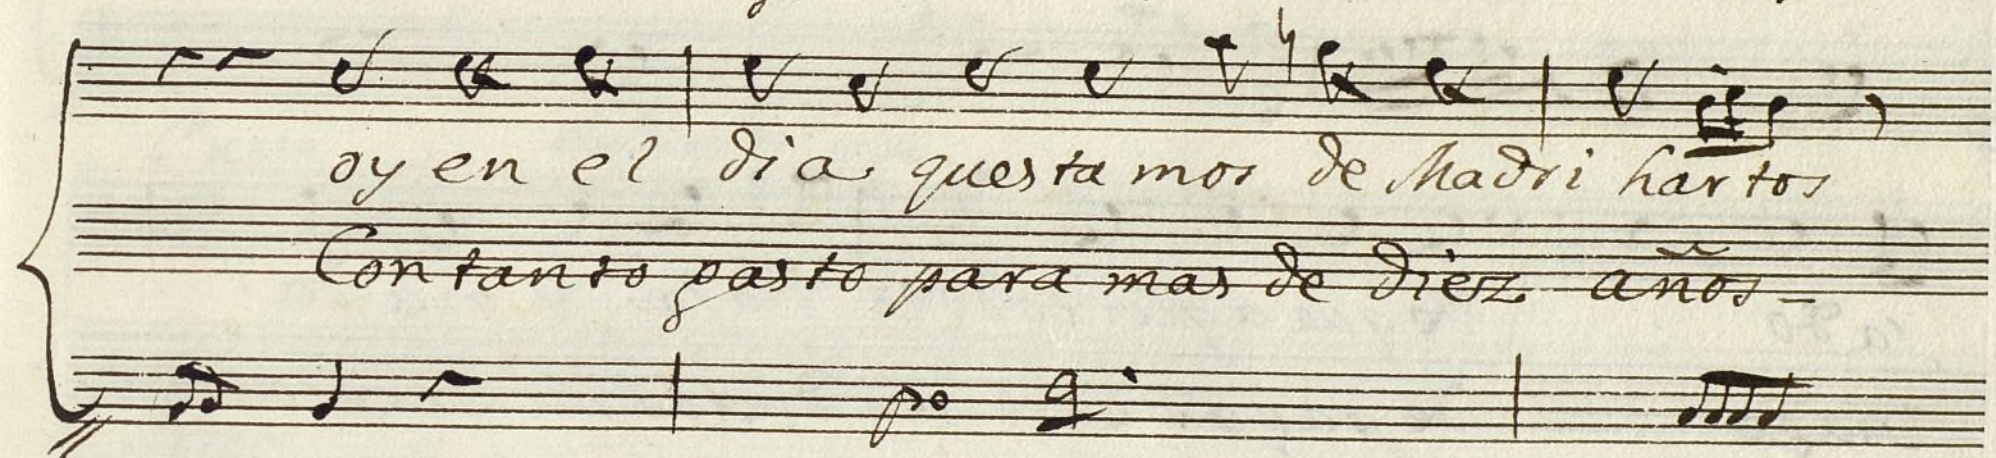 oy en el dia questamos de Madri hartos
Con tanto gasto para mas de diez años
po